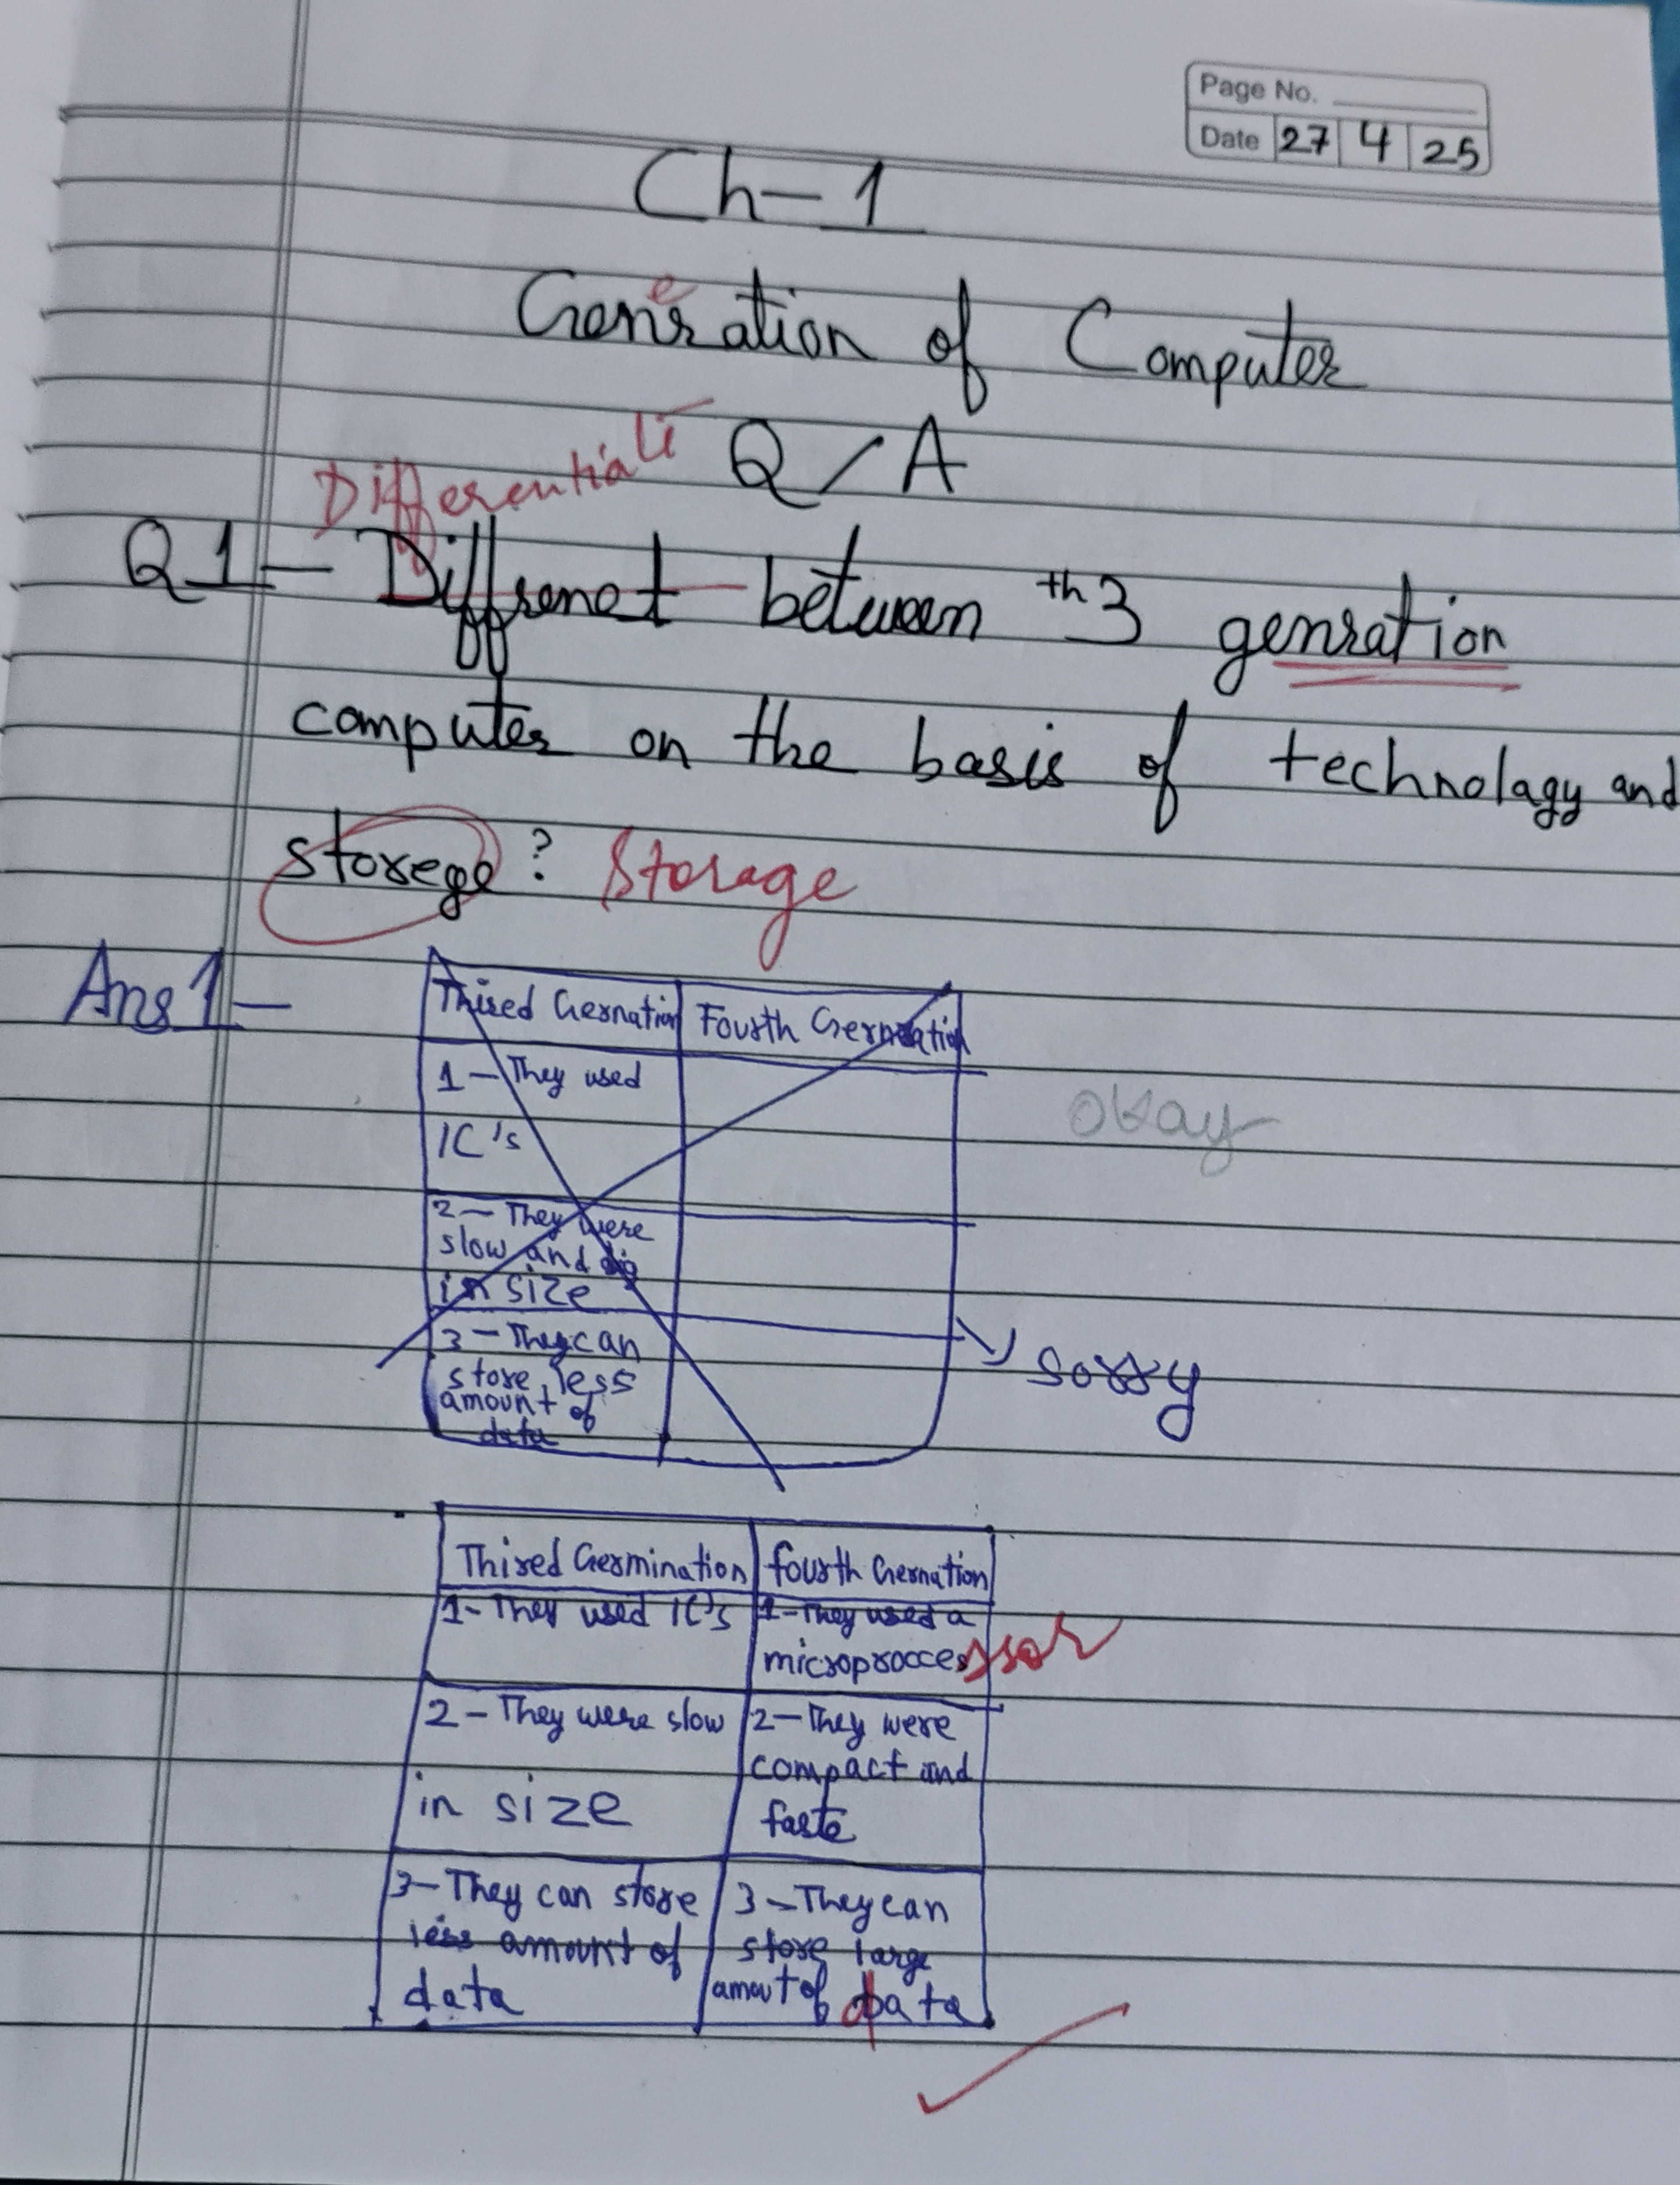 Page No.
Date 27 4 25
Ch-1
e
Genration of Computer
Q/A
Differentiate
Q1- Diffrenet between th 3 genration
computer on the basis of technolagy and
storege? Storage
Ans 1-
Thired Gernation Fourth Gernation
1- They used
IC's
okay
2- They were
slow and big
in size
3- They can
store less
amount of
data
sorry
Thired Germination fourth Gernation
1- They used IC's 1- They used a
microprocces ssor
2- They were slow 2- They were
compact and
in size faste
3- They can store 3- They can
less amount of store large
data amout of data